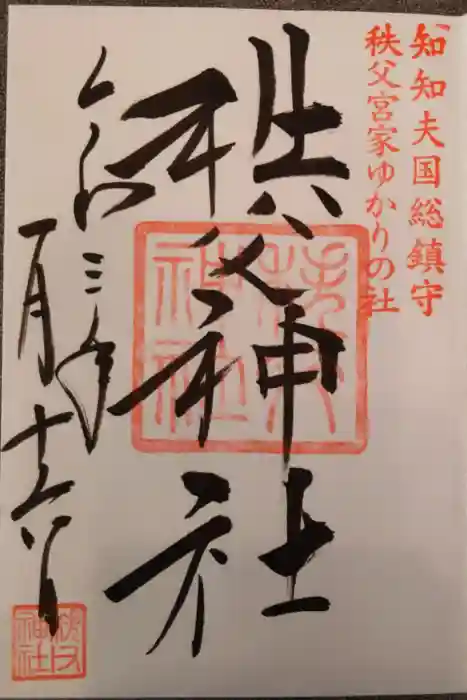 知知夫国総鎮守
秩父宮家ゆかりの社
秩父神社
令和三年
一月十六日
秩父神社
秩父神社